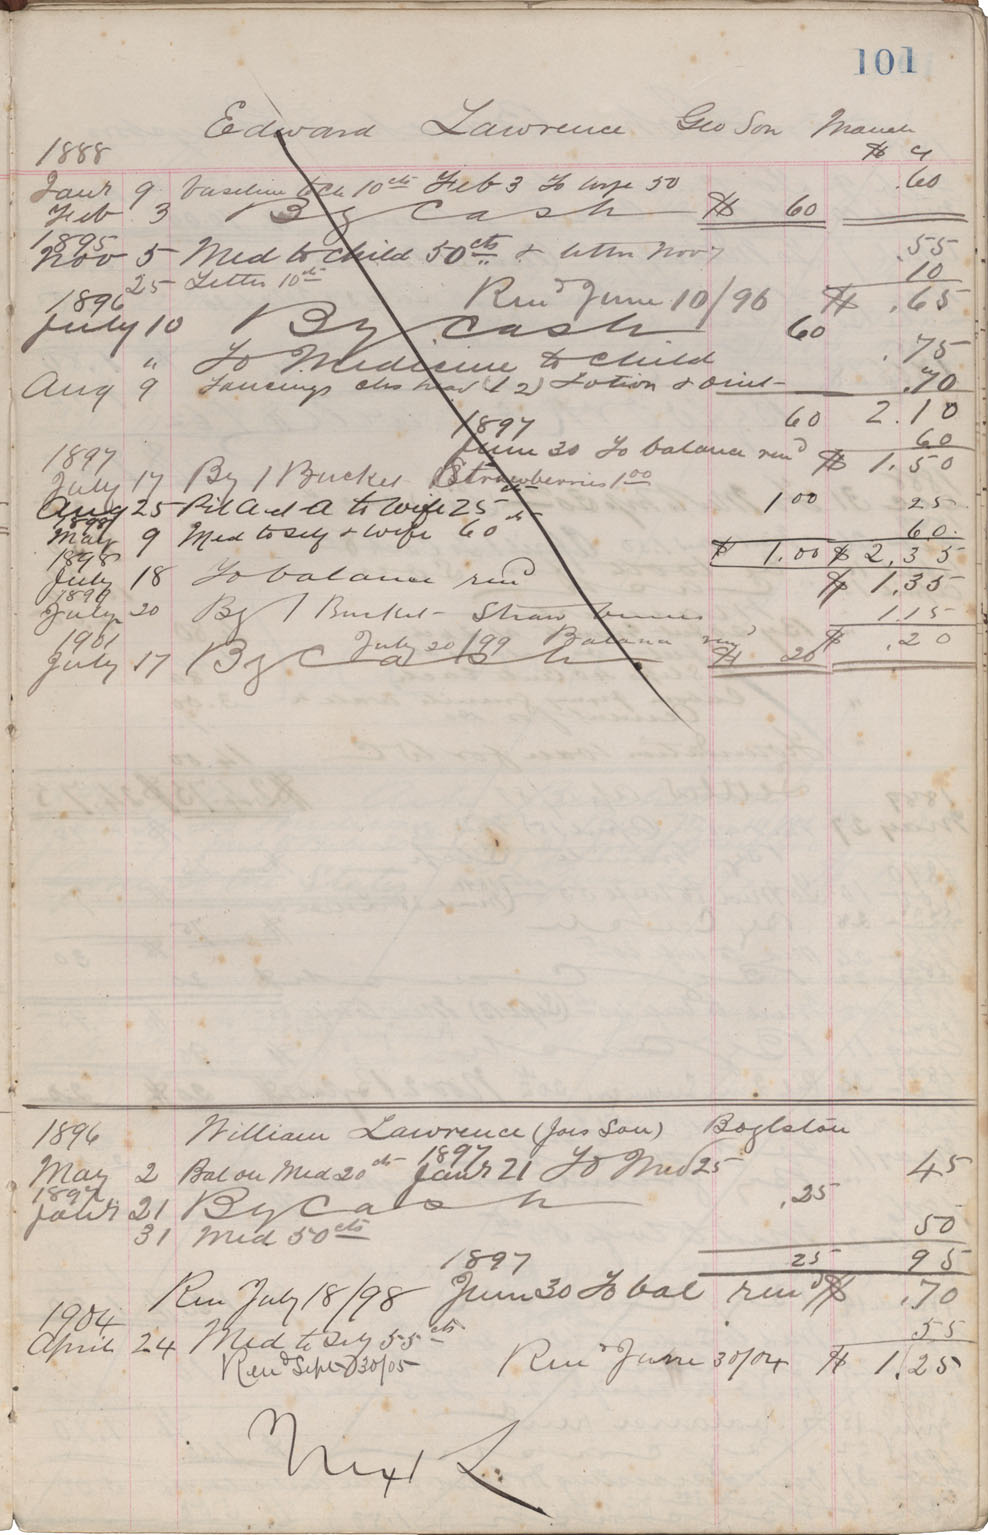 101
Edward Lawrence Geo Son
1888 $ c
Janr 9 Vaseline 10cts Feb 3 To wife 50 .60
Feb 3 By Cash $ 60
1895
Nov 5 Med to child 50cts & letter Nov 7 55
25 Letter 10cts 10
1896 Rend June 10/96 $ .65
July 10 By Cash 60
" To Medicine to child .75
Aug 9 Lotion & Oint .70
1897 60 2.10
June 30 To balance rend 60
1897 $ 1.50
July 17 By 1 Bucket Strawberries 1.00 1.00
Aug 25 to wife 25cts 25
1898
May 9 Med to self & wife 60cts 60
1898 $ 1.00 $ 2.35
July 18 To balance rend $ 1.35
1899
July 20 By 1 Bucket Strawberries 1.15
1901 July 20/99 Balance rend $ .20
July 17 By Cash $ 20
1896 William Lawrence (Joes Son) Boylston
May 2 Bal on Med 20cts 1897 Janr 21 To Med 25 45
1897
Janr 21 By Cash .25
31 Med 50cts 50
1897 25 95
Ren July 18/98 June 30 To bal rend $ .70
1904
April 24 Med to self 55cts 55
Rend Sept 30/05 Rend June 30/04 $ 1.25
Next L